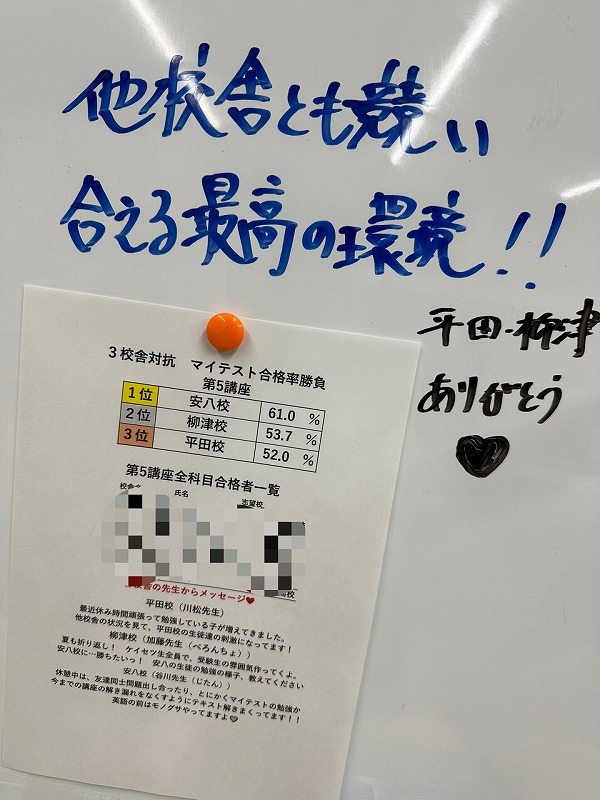 他校舎とも競い
合える最高の環境!!
平田・柳津
ありがとう
3校舎対抗 マイテスト合格率勝負
第5講座
1位 安八校 61.0 %
2位 柳津校 53.7 %
3位 平田校 52.0 %
第5講座全科目合格者一覧
校舎名 氏名 志望校
校舎の先生からメッセージ♥
平田校(川松先生)
最近休み時間頑張って勉強している子が増えてきました。
他校舎の状況を見て、平田校の生徒達の刺激になってます!
柳津校(加藤先生(ぺろんちょ))
夏も折り返し! ケイセツ生全員で、受験生の雰囲気作ってくよ。
安八校に…勝ちたいっ! 安八の生徒の勉強の様子、教えてください
安八校(谷川先生(じたん))
休憩中は、友達同士問題出し合ったり、とにかくマイテストの勉強か
今までの講座の解き漏れをなくすようにテキスト解きまくってます!!
英語の前はモノグサやってますよ♡